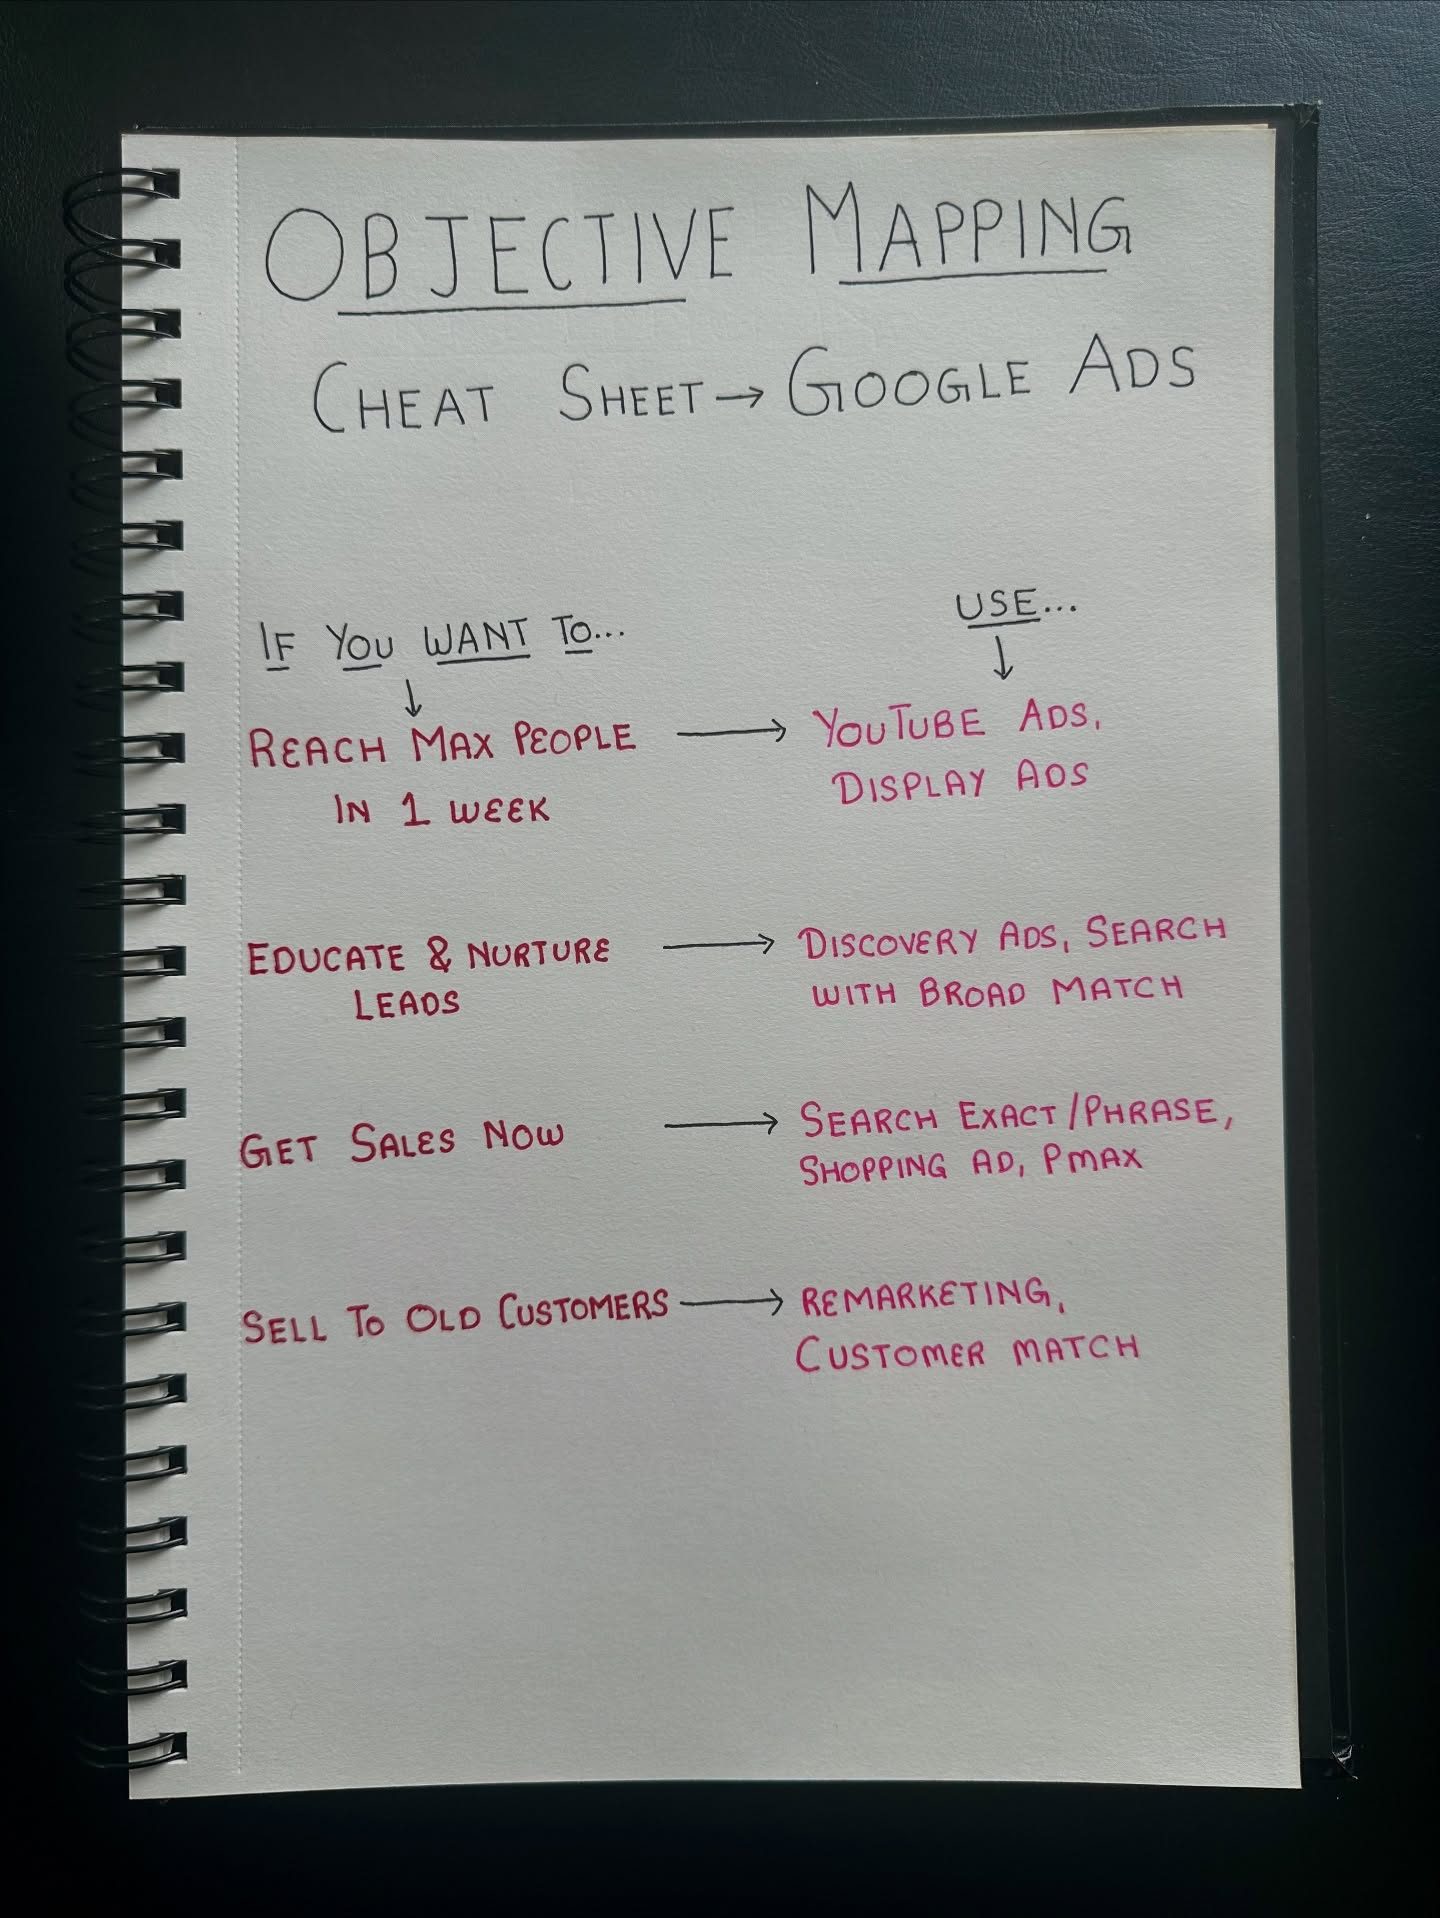 OBJECTIVE MAPPING
CHEAT SHEET → GOOGLE ADS
IF YOU WANT TO...
USE...
REACH MAX PEOPLE → YOUTUBE ADS,
IN 1 WEEK
DISPLAY ADS
EDUCATE & NURTURE → DISCOVERY ADS, SEARCH
LEADS
WITH BROAD MATCH
GET SALES NOW → SEARCH EXACT/PHRASE,
SHOPPING AD, PMAX
SELL TO OLD CUSTOMERS → REMARKETING,
CUSTOMER MATCH